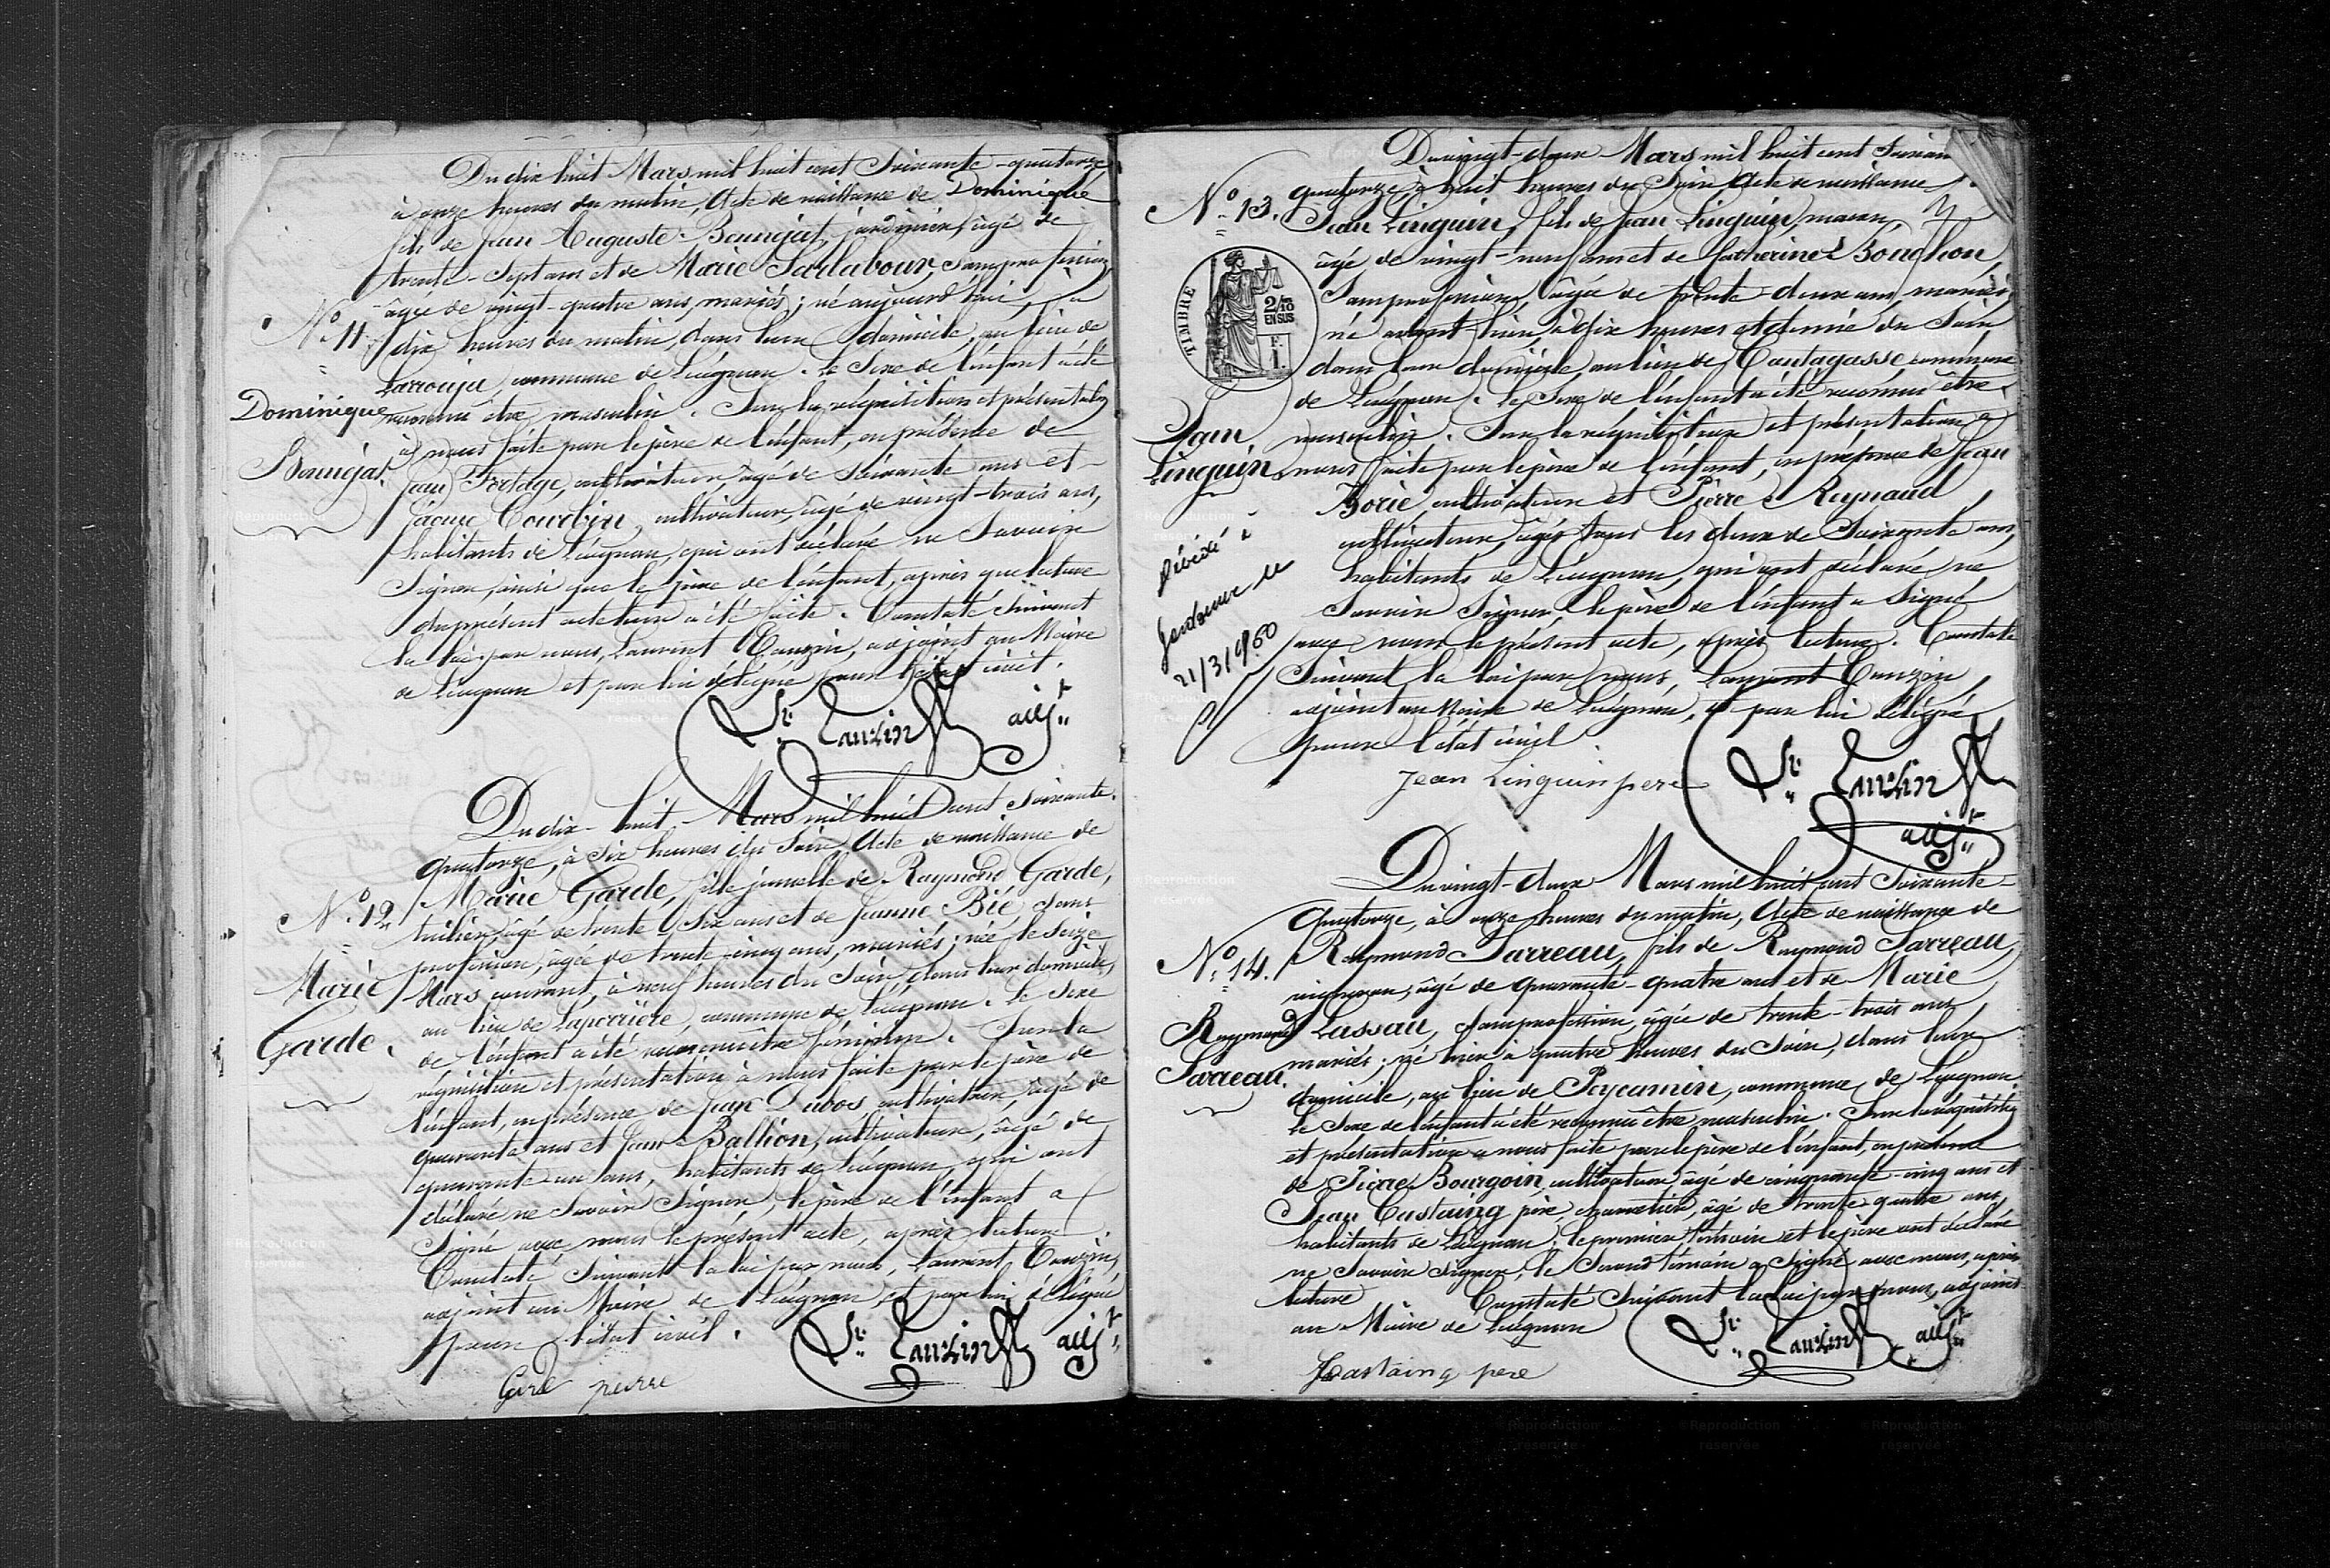 Du dix huit Mars mil huit cent Soixante-quatorze
à onze heures du matin, Acte de naissance de Dominique
fils de Jean Auguste Beauvejat, jardinier, âgé de
trente-sept ans et de Marie Sarlabour, sans profession,
âgée de vingt-quatre ans, mariés ; né aujourd'hui, à
Nº 11
dix heures du matin, dans leur domicile, au lieu de
commune de Léognan. Le Sexe de l'enfant a été
Dominique
reconnu être masculin. Sur la réquisition et présentation
à nous faite par le père de l'enfant, en présence de
Jean cultivateur, âgé de Soixante ans et
cultivateur, âgé de vingt-trois ans,
habitants de Léognan, qui ont déclaré ne Savoir
Signer, ainsi que le père de l'enfant, après que lecture
du présent acte leur a été faite. Constaté Suivant
la loi par nous, Laurent Cauzin, adjoint au Maire
de Léognan et par lui délégué pour l'état civil.
Lt Cauzin adjt
Du dix-huit Mars mil huit cent Soixante-
quatorze, à Six heures du Soir, Acte de naissance de
Marie Garde, fille jumelle de Raymond Garde,
Nº 12
tuilier, âgé de trente Six ans et de Jeanne Bié, Sans
profession, âgée de trente-cinq ans, mariés ; née le Seize
Marie
Garde.
Mars courant, à neuf heures du Soir, dans leur domicile,
au lieu de commune de Léognan. Le Sexe
de l'enfant a été reconnu être féminin. Sur la
réquisition et présentation à nous faite par le père de
l'enfant, en présence de Jean Dubos, cultivateur, âgé de
quarante ans et Jean Ballion, cultivateur, âgé de
quarante un ans, habitants de Léognan, qui ont
déclaré ne Savoir Signer, le père de l'enfant a
Signé avec nous le présent acte, après lecture.
Constaté Suivant la loi par nous, Laurent Cauzin,
adjoint au Maire de Léognan et par lui délégué
pour l'état civil.
Lt Cauzin adjt
Du vingt-deux Mars mil huit cent
Nº 13.
quatorze, à huit heures du Soir, Acte de naissance
Jean Linguin, fils de Jean Linguin, maçon,
âgé de vingt-neuf ans et de Catherine Bouchon,
TIMBRE
2/10
EN SUS
F.
1.
Sans profession, âgée de trente-deux ans, mariés,
né avant hier, à dix heures et demie du Soir
dans leur domicile, au lieu de Cantagasse commune
de Léognan. Le Sexe de l'enfant a été reconnu être
Jean
Linguin
masculin. Sur la réquisition et présentation à
nous faite par le père de l'enfant, en présence de Jean
Borie, cultivateur et Pierre Reynaud,
cultivateur, âgés tous les deux de Soixante ans,
habitants de Léognan, qui ont déclaré ne
Savoir Signer, le père de l'enfant a Signé
avec nous le présent acte, après lecture. Constaté
Suivant la loi par nous, Laurent Cauzin,
adjoint au Maire de Léognan, et par lui délégué
pour l'état civil.
Décédé à
le
Jean Linguin pere
Lt Cauzin
adjt
Du vingt-deux Mars mil huit cent Soixante-
quatorze, à onze heures du matin, Acte de naissance de
Nº 14.
Raymond Sarreau, fils de Raymond Sarreau,
vigneron, âgé de quarante-quatre ans et de Marie
Raymond
Sarreau.
Lassau, Sans profession, âgée de trente-trois ans,
mariés ; né hier à quatre heures du Soir, dans leur
domicile, au lieu de Peycamin, commune de Léognan.
Le Sexe de l'enfant a été reconnu être masculin. Sur la réquisition
et présentation à nous faite par le père de l'enfant, en présence
de Pierre Bourgoin, cultivateur, âgé de cinquante-cinq ans et
Jean Castaing père, charretier, âgé de trente-quatre ans,
habitants de Léognan ; le premier témoin et le père ont déclaré
ne Savoir Signer, le Second témoin a Signé avec nous, après
lecture Constaté Suivant la loi par nous, adjoint
au Maire de Léognan
Lt Cauzin adjt
Castaing pere